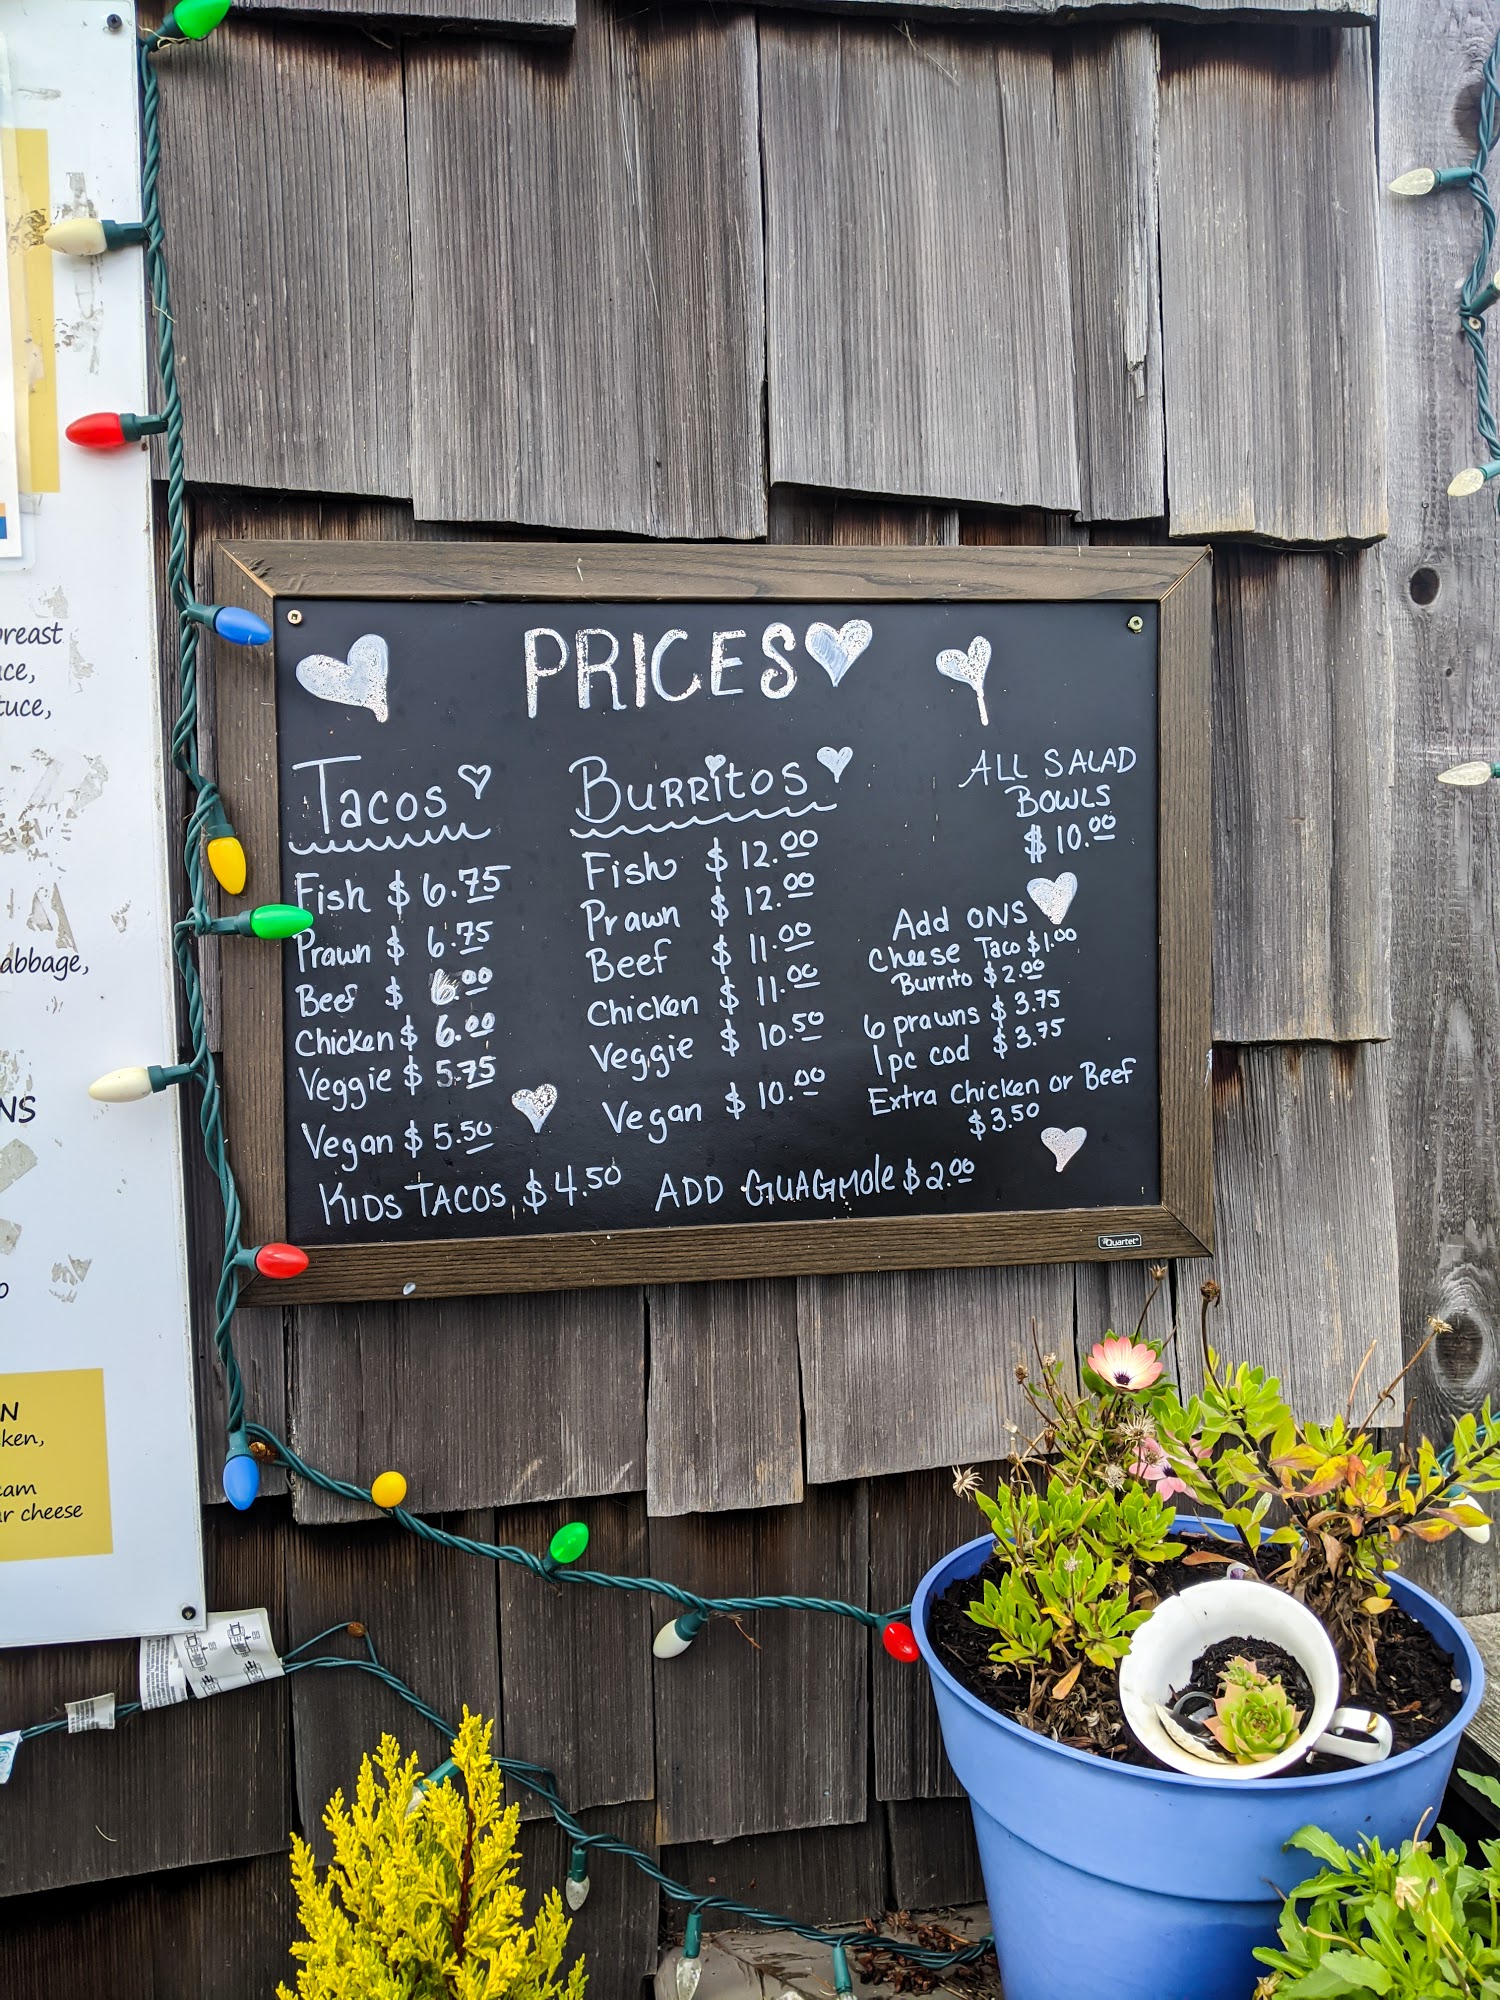 PRICES
Tacos
Fish $ 6.75
Prawn $ 6.75
Beef $ 6.00
Chicken $ 6.00
Veggie $ 5.75
Vegan $ 5.50
KIDS TACOS $ 4.50
BURRITOS
Fish $ 12.00
Prawn $ 12.00
Beef $ 11.00
Chicken $ 11.00
Veggie $ 10.50
Vegan $ 10.00
ADD GUAGMOle $ 2.00
ALL SALAD
BOWLS
$ 10.00
Add ONS
Cheese Taco $1.00
Burrito $ 2.00
6 prawns $ 3.75
1pc cod $ 3.75
Extra Chicken or Beef
$ 3.50
Quartet
breast
tuce,
abbage,
NS
N
ken,
eam
ar cheese